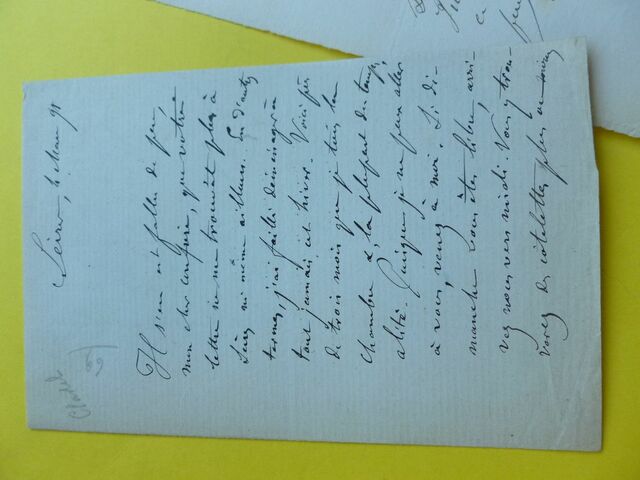 Cladel
Sèvres, 4 Mars 91
Il s'en est fallu de peu,
mon cher confrère, que votre
lettre ne me trouvât plus à
Sèvres ni même ailleurs. En d'autres
termes, j'ai failli déménager à
tout jamais cet hiver. Voici près
de trois mois que je tiens la
chambre &, la plupart du temps,
alité. Puisque je ne puis aller
à vous, venez à moi. Si di-
manche vous êtes libre, arri-
vez nous vers midi. Vous y trou-
verez des côtelettes plus ou moins